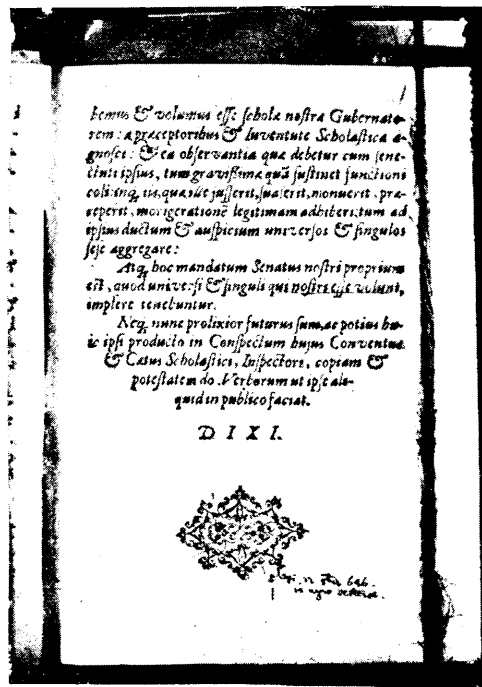 bemus & volumus esse scholæ nostræ Gubernato-
rem: a præceptoribus & Iuventute Scholastica a-
gnosci: & ea observantia quæ debetur cum sene-
ctuti ipsius, tum gravißimæ quã sustinet functioni
coli: inq; iis, quæ ille jusserit, suaserit, monuerit, præ-
ceperit, morigerationẽ legitimam adhiberi: tum ad
ipsius ductum & auspicium universos & singulos
sese aggregare:
Atq; hoc mandatum Senatus nostri proprium
est, quod universi & singuli qui nostri esse volunt,
implere tenebuntur.
Neq; nunc prolixior futurus sum, ac potius hu-
ic ipsi producto in Conspectum hujus Conventus
& Cœtus Scholastici, Inspectore, copiam &
potestatem do. Verborum ut ipse ali-
quid in publico faciat.
D I X I.
646.